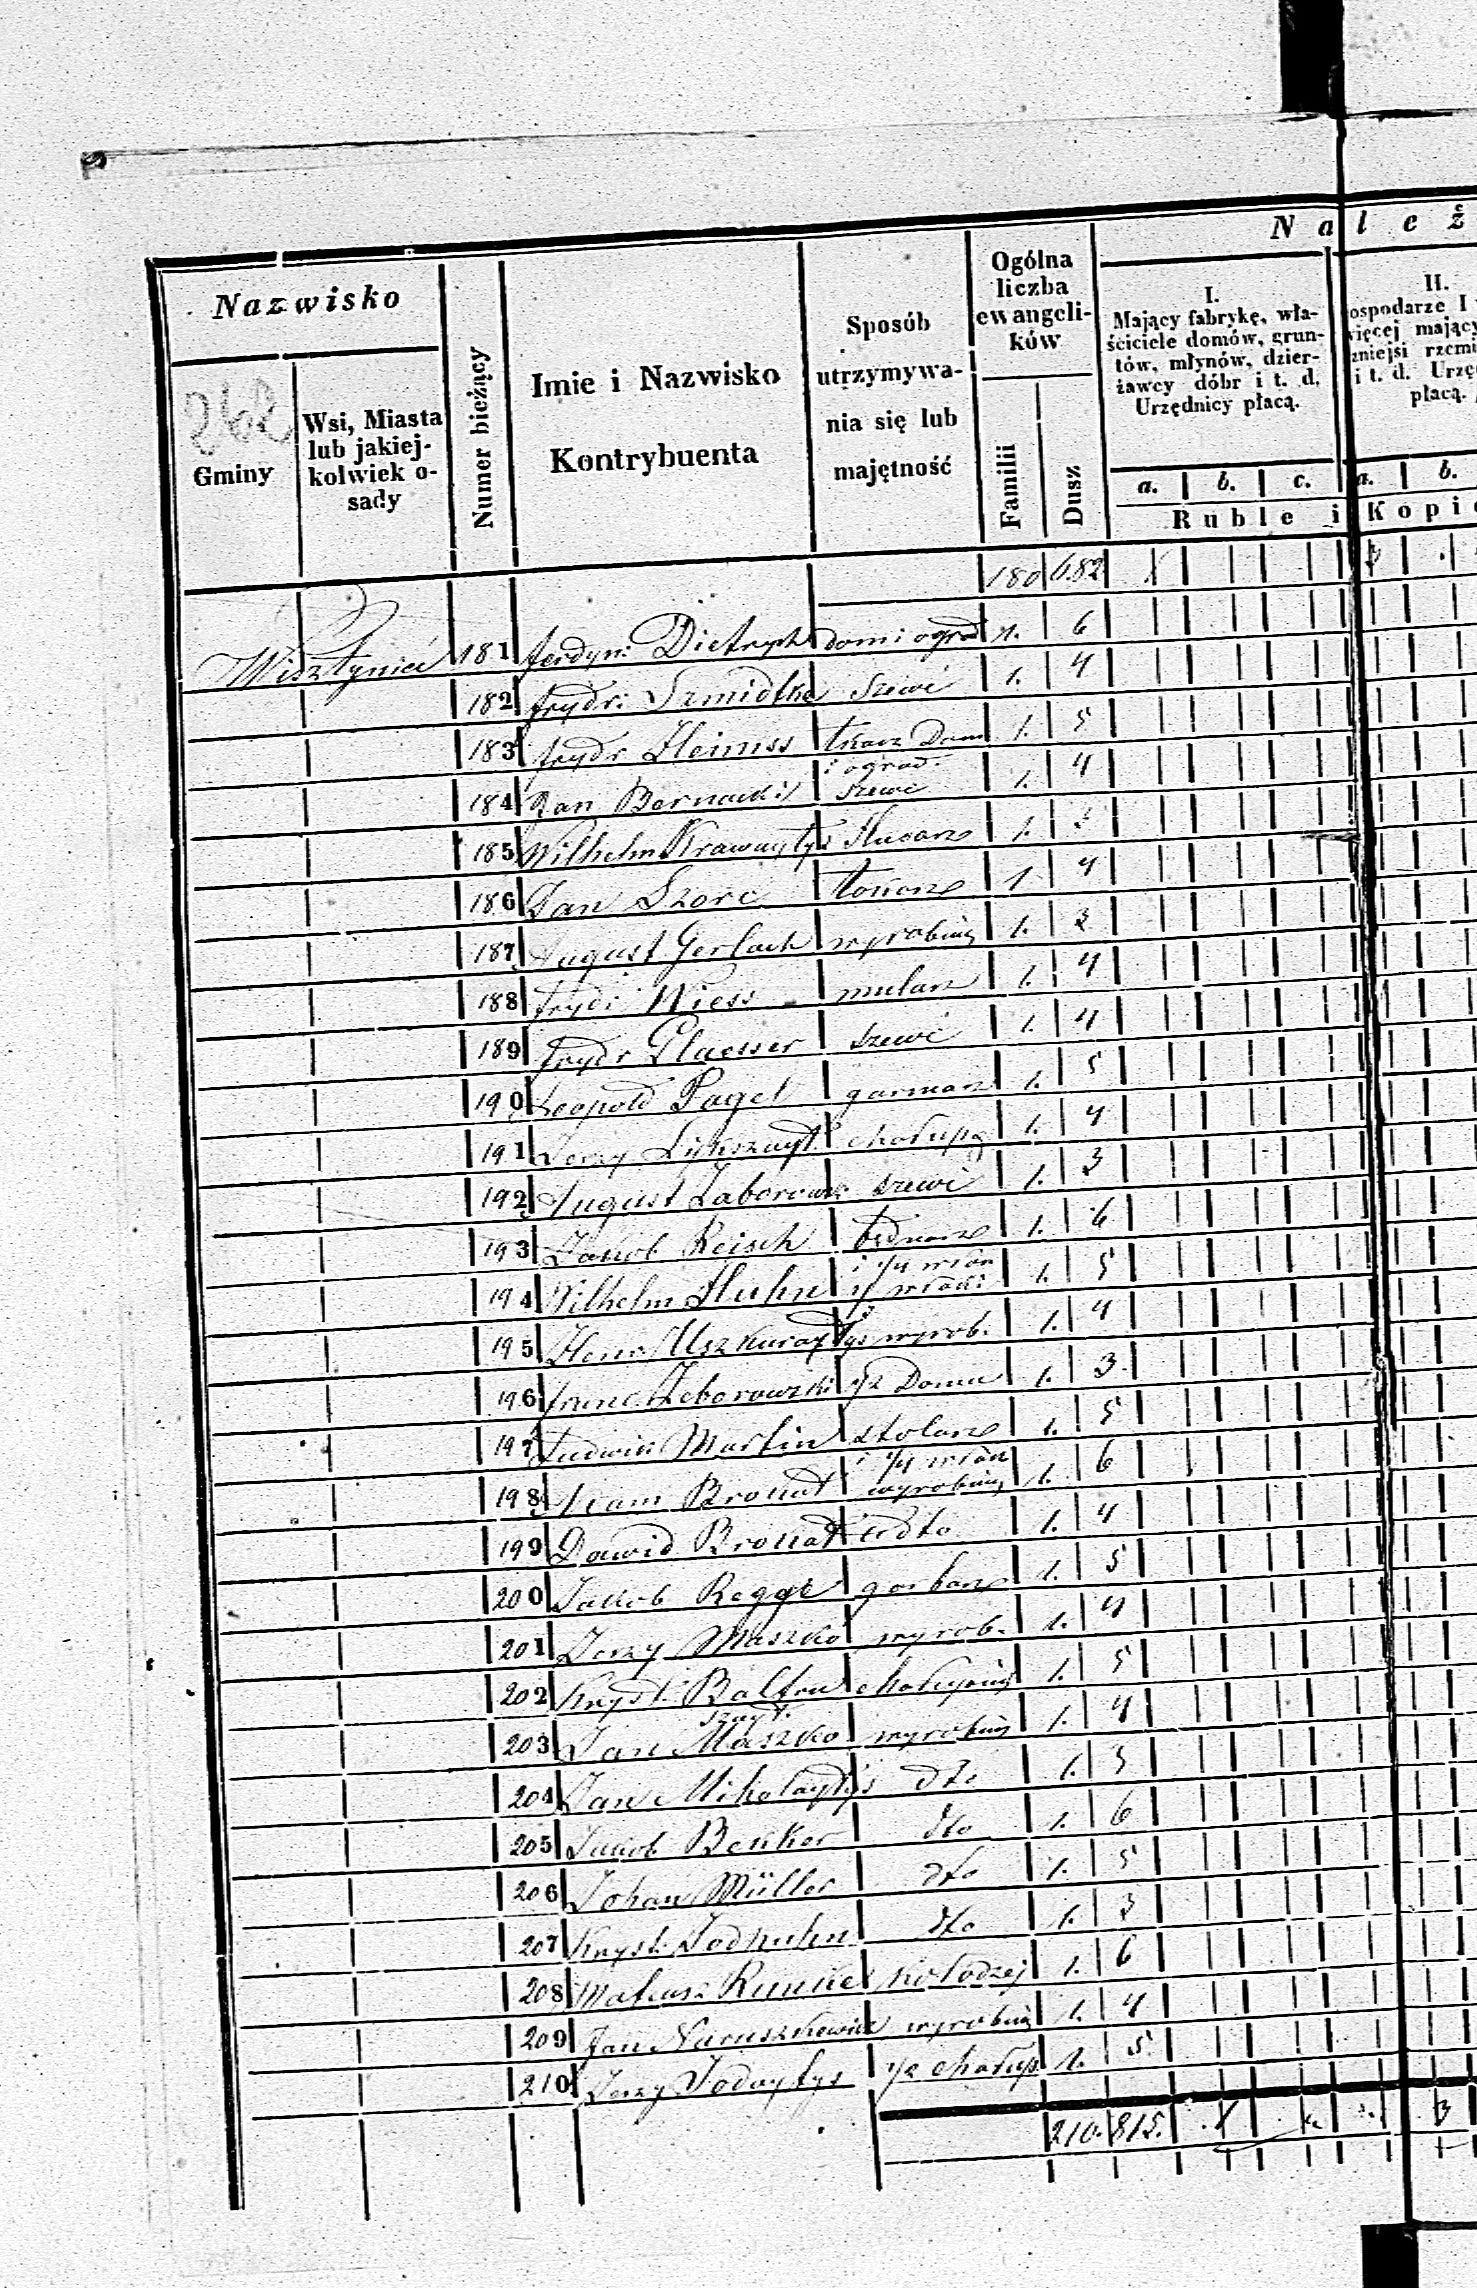 Nazwisko
Gminy
Wsi, Miasta
lub jakiej-
kolwiek o-
sady
Numer bieżący
Imie i Nazwisko
Kontrybuenta
Sposób
utrzymywa-
nia się lub
majętność
Ogólna
liczba
ewangeli-
ków
Familii
Dusz
Należ
I.
Mający fabrykę, wła-
ściciele domów, grun-
tów, młynów, dzier-
żawcy dóbr i t. d.
Urzędnicy płacą.
II.
ospodarze I
więcej mający
zniejsi rzemi
i t. d. Urzę
płacą.
a. b. c. a. b.
Ruble i Kopie
262
180 682
Wisztyniec 181 Ferdyn: Dietrych dom i ogrod 1. 6
182 Frydr: Szmidtke szewć 1. 4
183 Frydr Heimss tkacz Dom 1. 5
i ogrod
184 Jan Bernacki szewć 1. 4
185 Wilhelm Krawaytys slusarz 1. 3
186 Jan Szorc 1 4
187 August Gerlach wyrobnig 1. 3
188 Frydr Wiess mularz 1. 4
189 Frydr Glaesser szewć 1. 4
190 Leopold Pagel garnarz 1. 5
191 Jerzy chałupa 1. 4
192 August Zaborows szewć 1. 3
193 Jakob Reisch bednarz 1. 6
i 1/4 włók
194 Wilhelm Huhn włóki 1. 5
195 Henr Uszkuraytys wyrob. 1. 4
196 Zeborowski 1/2 Domu 1. 3
197 Ludwik Martin stolarz 1. 5
i 1/4 włók
198 Adam Bronat wyrobnig 1. 6
199 Dawid Bronat dto 1. 4
200 Jakob Regge garbarz 1. 5
201 Jerzy Maszko wyrob. 1. 4
202 Kryst. Baltru chałupnig 1. 5
szayt.
203 Jan Maszko wyrobnig 1. 4
204 Jan Mikolaytys dto 1. 5
205 Jakob Benker dto 1. 6
206 Johan Müller dto 1. 5
207 Kryst. Jodkuhn dto 1. 3
208 Mateusz Runke kołodzej 1. 6
209 Jan Naruszkewicz wyrobnig 1. 4
210 Jerzy Jodaytys 1/2 chałup 1. 5
210. 815.